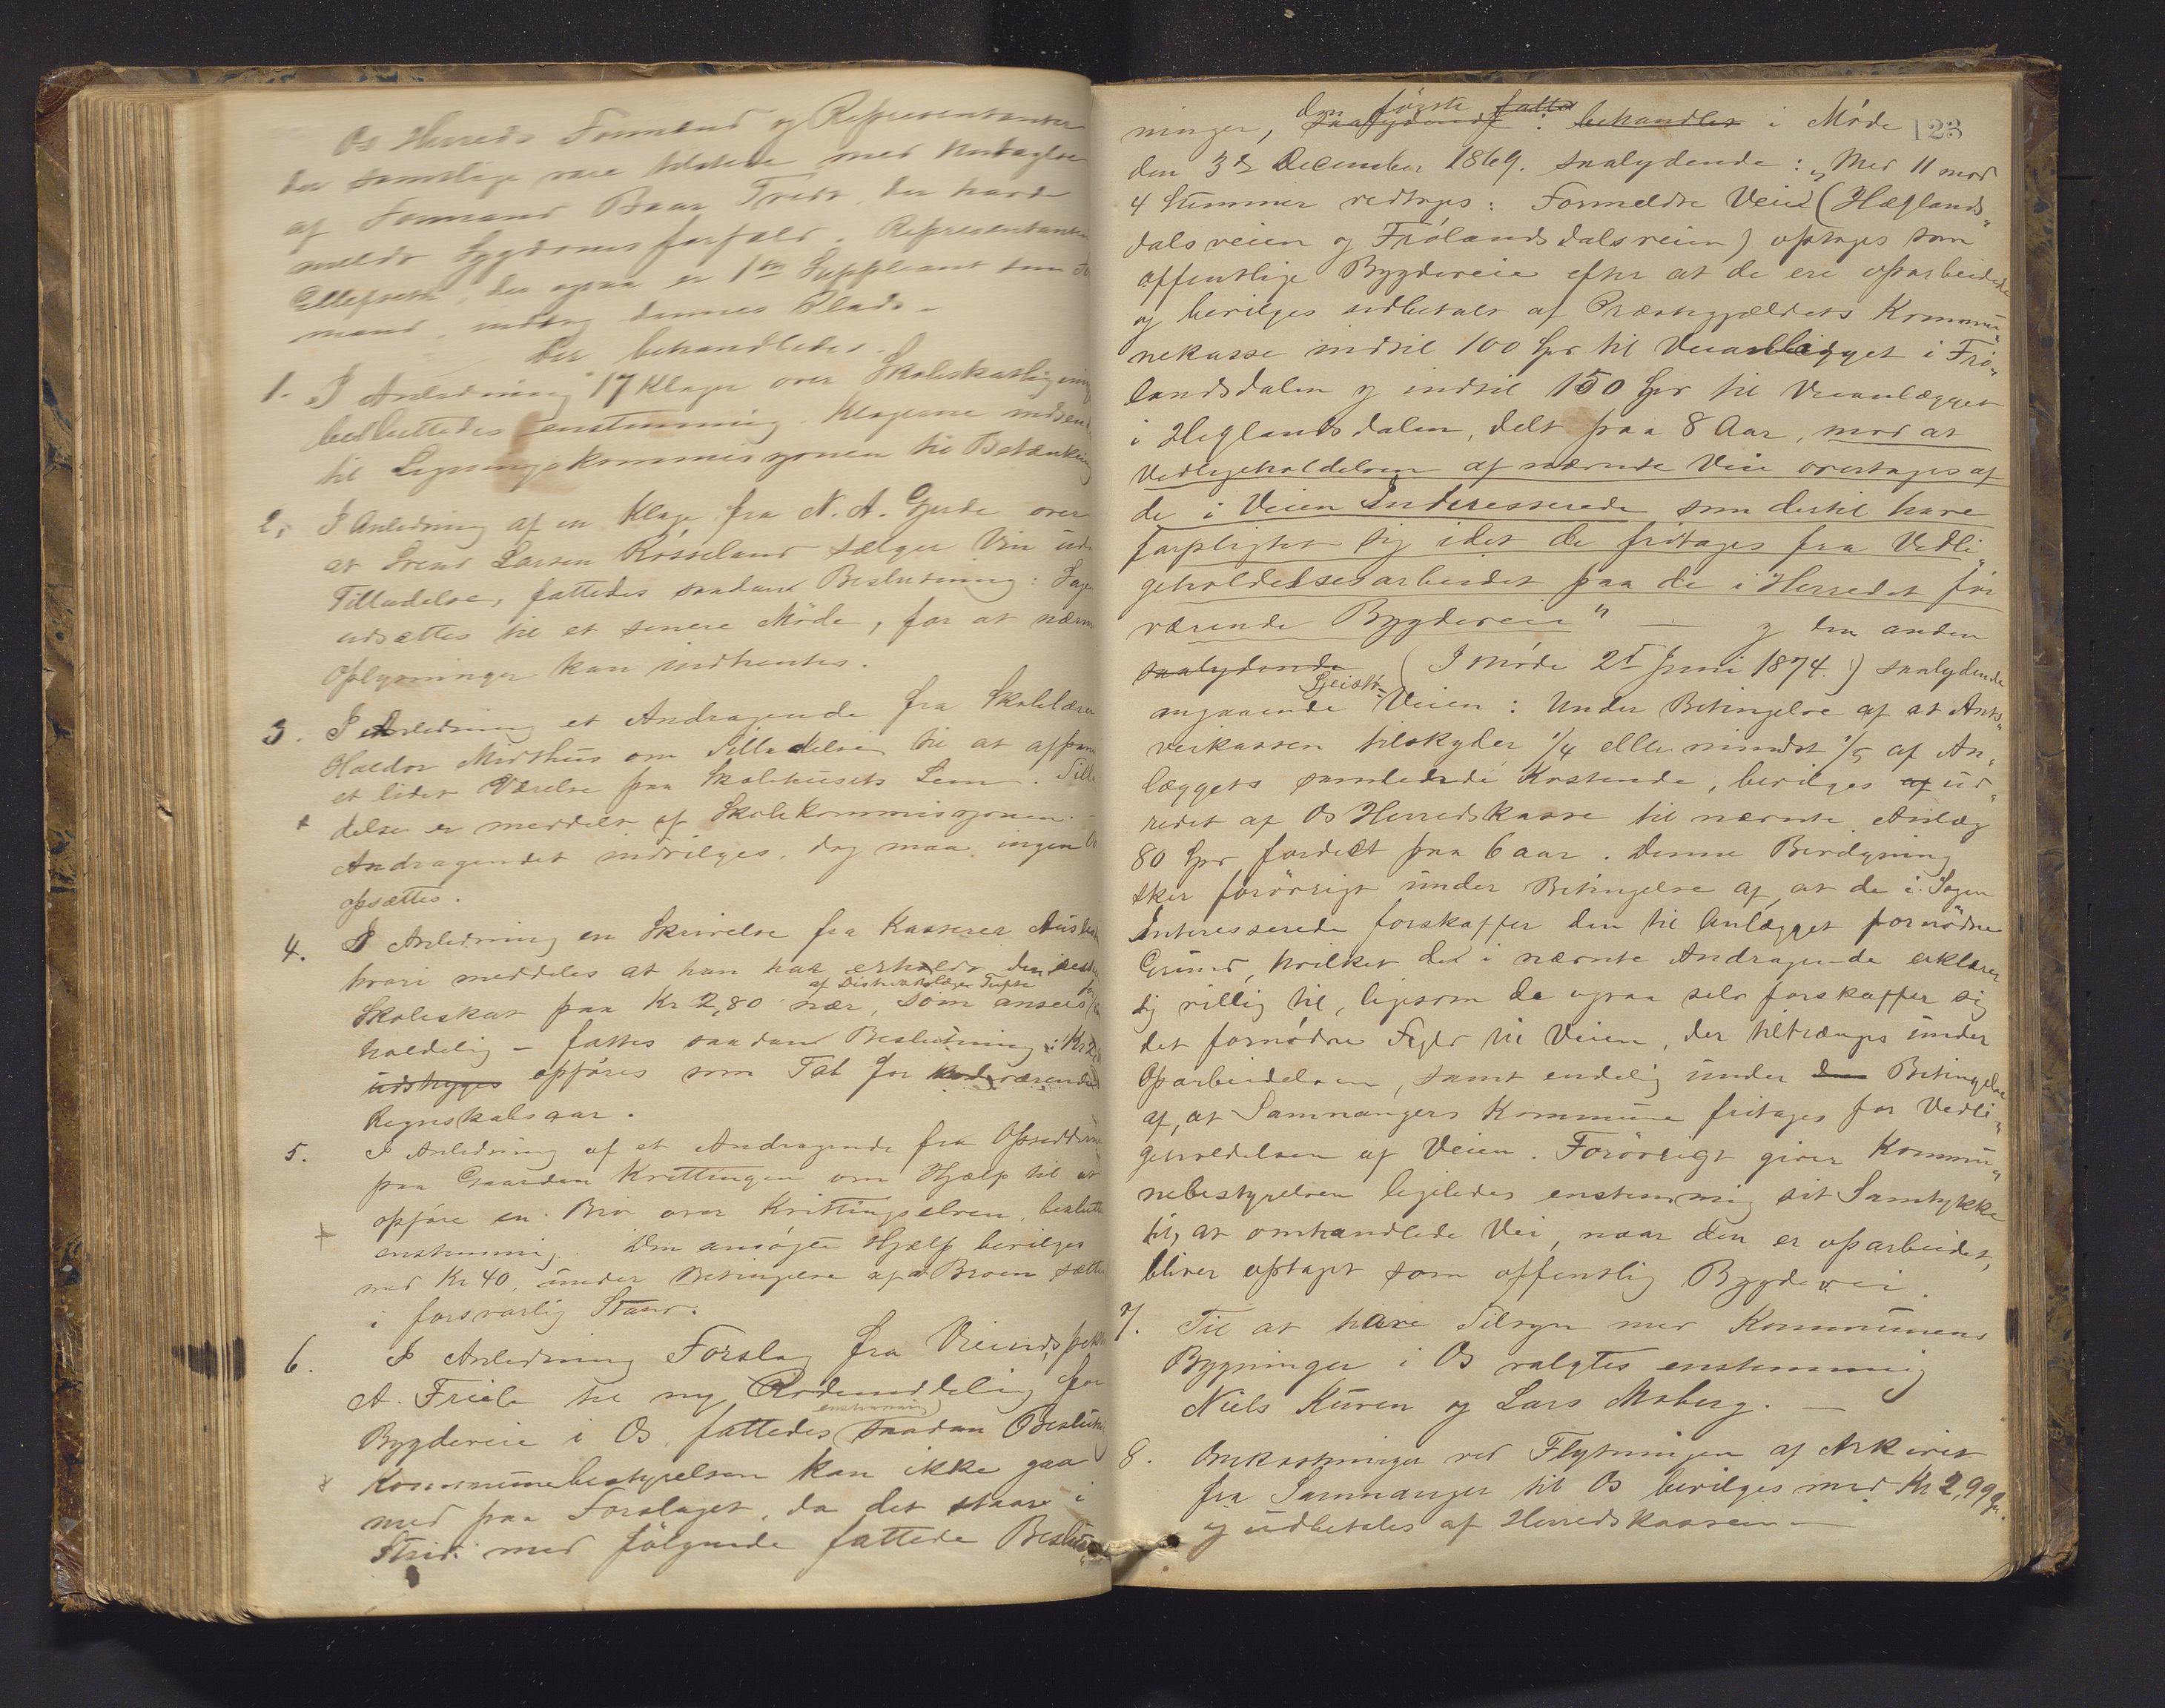 Os Herreds Formænd og Representanter
der samtlige vare tilstede med Undtagelse
af Formand Baar Tveit, der havde
meldt Sygdomsforfald. Representanten
der ogsaa er 1ste Suppleant som For
mand, indtog dennes Plads.
Der behandledes
1. I Anledning 17 Klager over Skoleskatligning
besluttedes enstemmig. Klagerne indsend
til Ligningskommissionen til Betænkning
2. I Anledning af en Klage fra N. A. Gjerde over
at Svend Larsen Røsseland sælger Vin uden
Tilladelse, fattedes saadan Beslutning: Sagen
udsættes til et senere Møde, for at nærm
Oplysninger kan indhentes.
3. I Anledning et Andragende fra Skolelærer
Haldor Midthus om Tilladelse til at afpan
et lidet Værelse paa Skolehusets Lem. Tilla
delse er meddelt af Skolekommissionen. –
Andragendet indvilges, dog maa ingen Ov
opsættes.
4. I Anledning en Skrivelse fra Kasserer
hvori meddeles at han har erholdt den
af Distriktslæge
Skoleskat paa Kr 2,80 nær, som ansees
holdelig – fattes saadan Beslutning: Kr 2,80
udstryges opføres som Tab for indeværende
Regnskabsaar.
5. I Anledning af et Andragende fra Opsidderne
paa Gaarden Krittingen om Hjælp til at
opføre en Bro over Krittingselven, beslutte
enstemmig. Den ansøgte Hjælp bevilges
med Kr 40, under Betingelse af at Broen sættes
i forsvarlig Stand.
6. I Anledning Forslag fra Veiinspekt
A. Friele til ny Rodeinddeling for
enstemmig
Bygdeveie i Os, fattedes saadan Beslutn
Kommunebestyrelsen kan ikke gaa
med paa Forslaget, da det staar i
Strid med følgende fattede Beslut„
123
den første fattet
ninger, saalydende: behandlet i Møde
den 3de December 1869. saalydende: „Med 11 mod
4 Stemmer vedtoges: Formeldte Veie (Hæglands„
dalsveien og Frølandsdalsveien) optages som
offentlige Bygdeveie efter at de ere oparbeidede
og bevilges udbetalt af Præstegjældets Kommu„
nekasse indtil 100 Spd til Veianlægget i Frø„
landsdalen og indtil 150 Spd til Veianlægget
i Heglandsdalen, delt paa 8 Aar, mod at
Vedligeholdelsen af nævnte Veie overtages af
de i Veien Interesserede som dertil have
forpligtet sig idet de fritages fra Vedli„
geholdelsesarbeidet paa de i Herredet for
værende Bygdeveie“ — og den anden
saalydende (I Møde 25 Juni 1874.) saalydende
angaaende Veien: Under Betingelse af at Amts„
veikassen tilskyder 1/4 eller mindst 1/5 af An„
læggets samlede Kostende, bevilges af ud„
redet af Os Herredskasse til nævnte Anlæg
80 Spd fordelt paa 6 aar. Denne Bevilgning
sker forøvrigt under Betingelse af, at de i Sagen
Interesserede forskaffer den til Anlægget fornødne
Grund, hvilket de i nævnte Andragende erklærer
sig villig til, ligesom de ogsaa selv forskaffer sig
det fornødne Fyld til Veien, der tiltrænges under
Oparbeidelsen, samt endelig under den Betingelse
af, at Samnangers Kommune fritages for Vedli„
geholdelsen af Veien. Forøvrigt giver Kommu„
nebestyrelsen ligeledes enstemmig sit Samtykke
til, at omhandlede Vei, naar den er oparbeidet,
bliver optaget som offentlig Bygdevei.
7. Til at have Tilsyn med Kommunens
Bygninger i Os valgtes enstemmig
Niels Kuven og Lars Moberg. —
8. Omkostninger ved Flytningen af Arkivet
fra Samnanger til Os bevilges med Kr 2,99
og udbetales af Herredskassen —